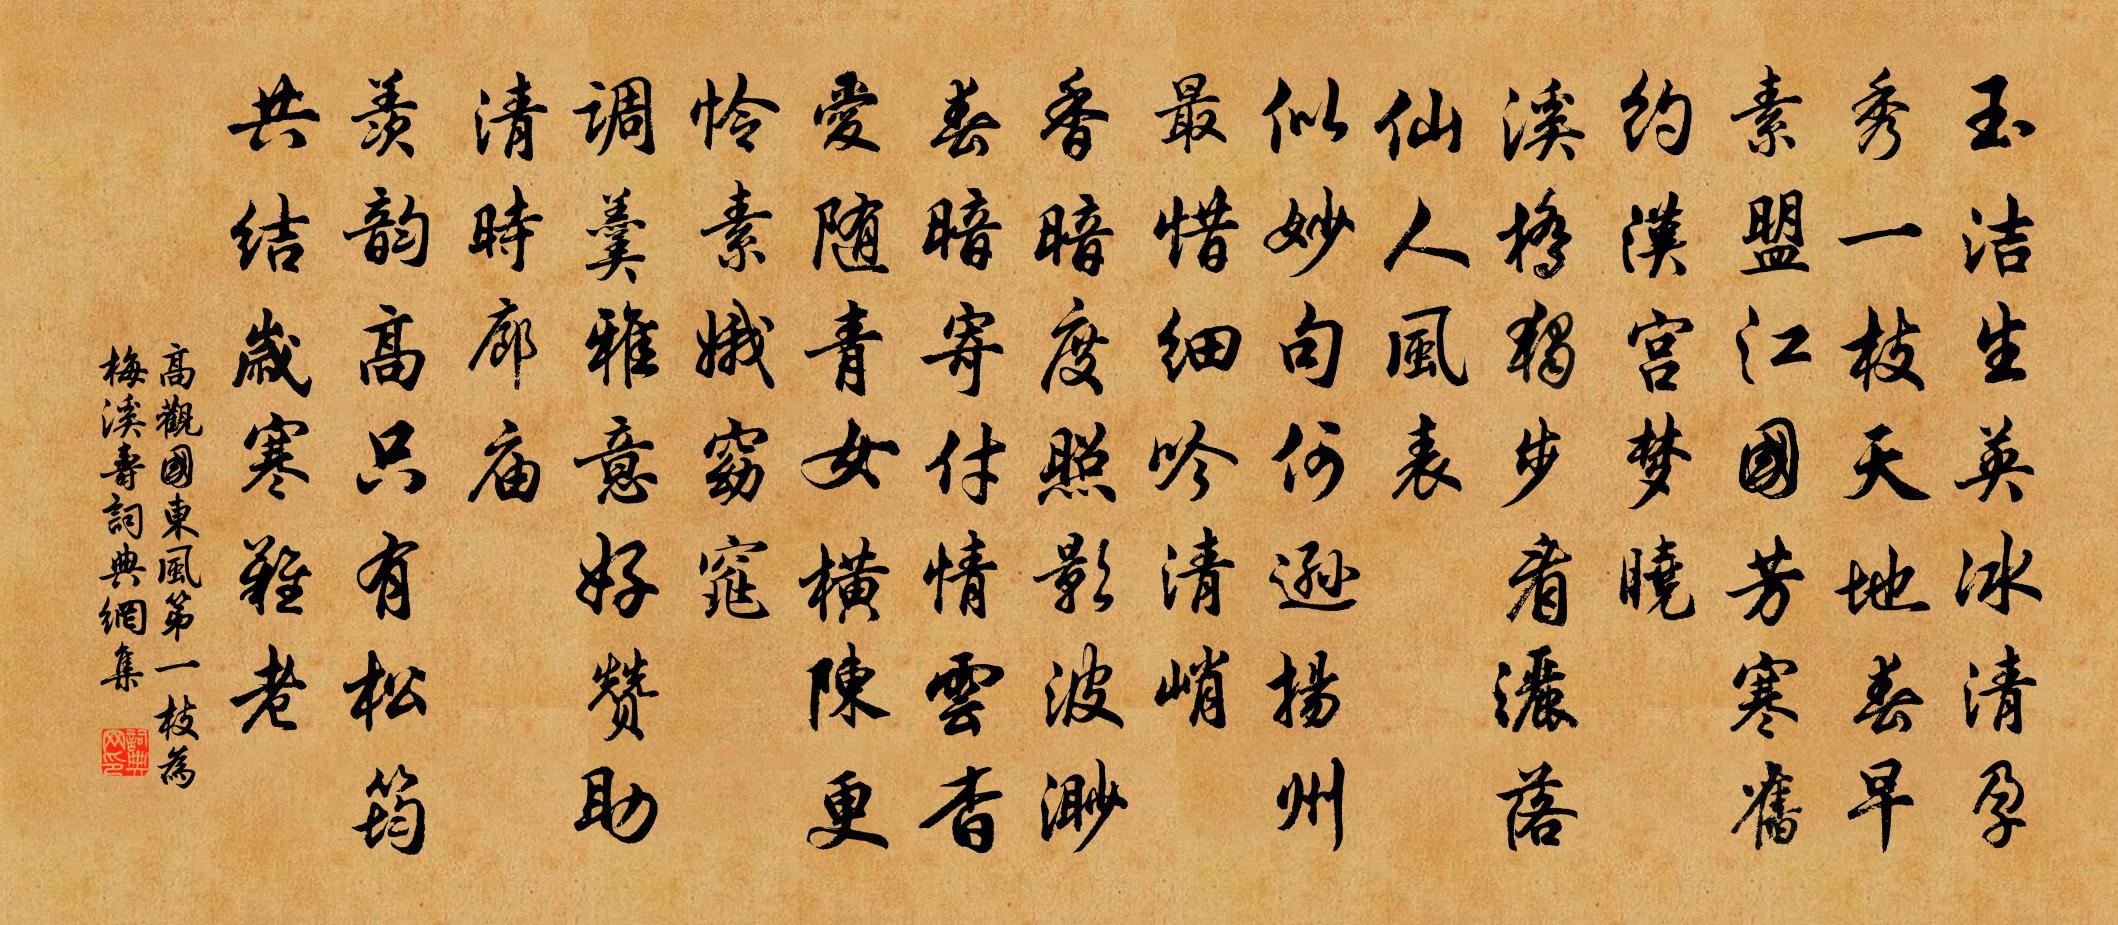 玉洁生英冰清孕
秀一枝天地春早
素盟江國芳寒舊
约漢宫梦曉
溪橋獨步看灑落
仙人風表
似妙句何遜揚州
最惜细吟清峭
香暗度照影波渺
春暗寄付情雲杳
愛随青女横陳更
怜素娥窈窕
调羹雅意好赞助
清時廊庙
羡韵高只有松筠
共结歲寒難老
高觀國東風第一枝為
梅溪壽詞典網集
詞典
网印